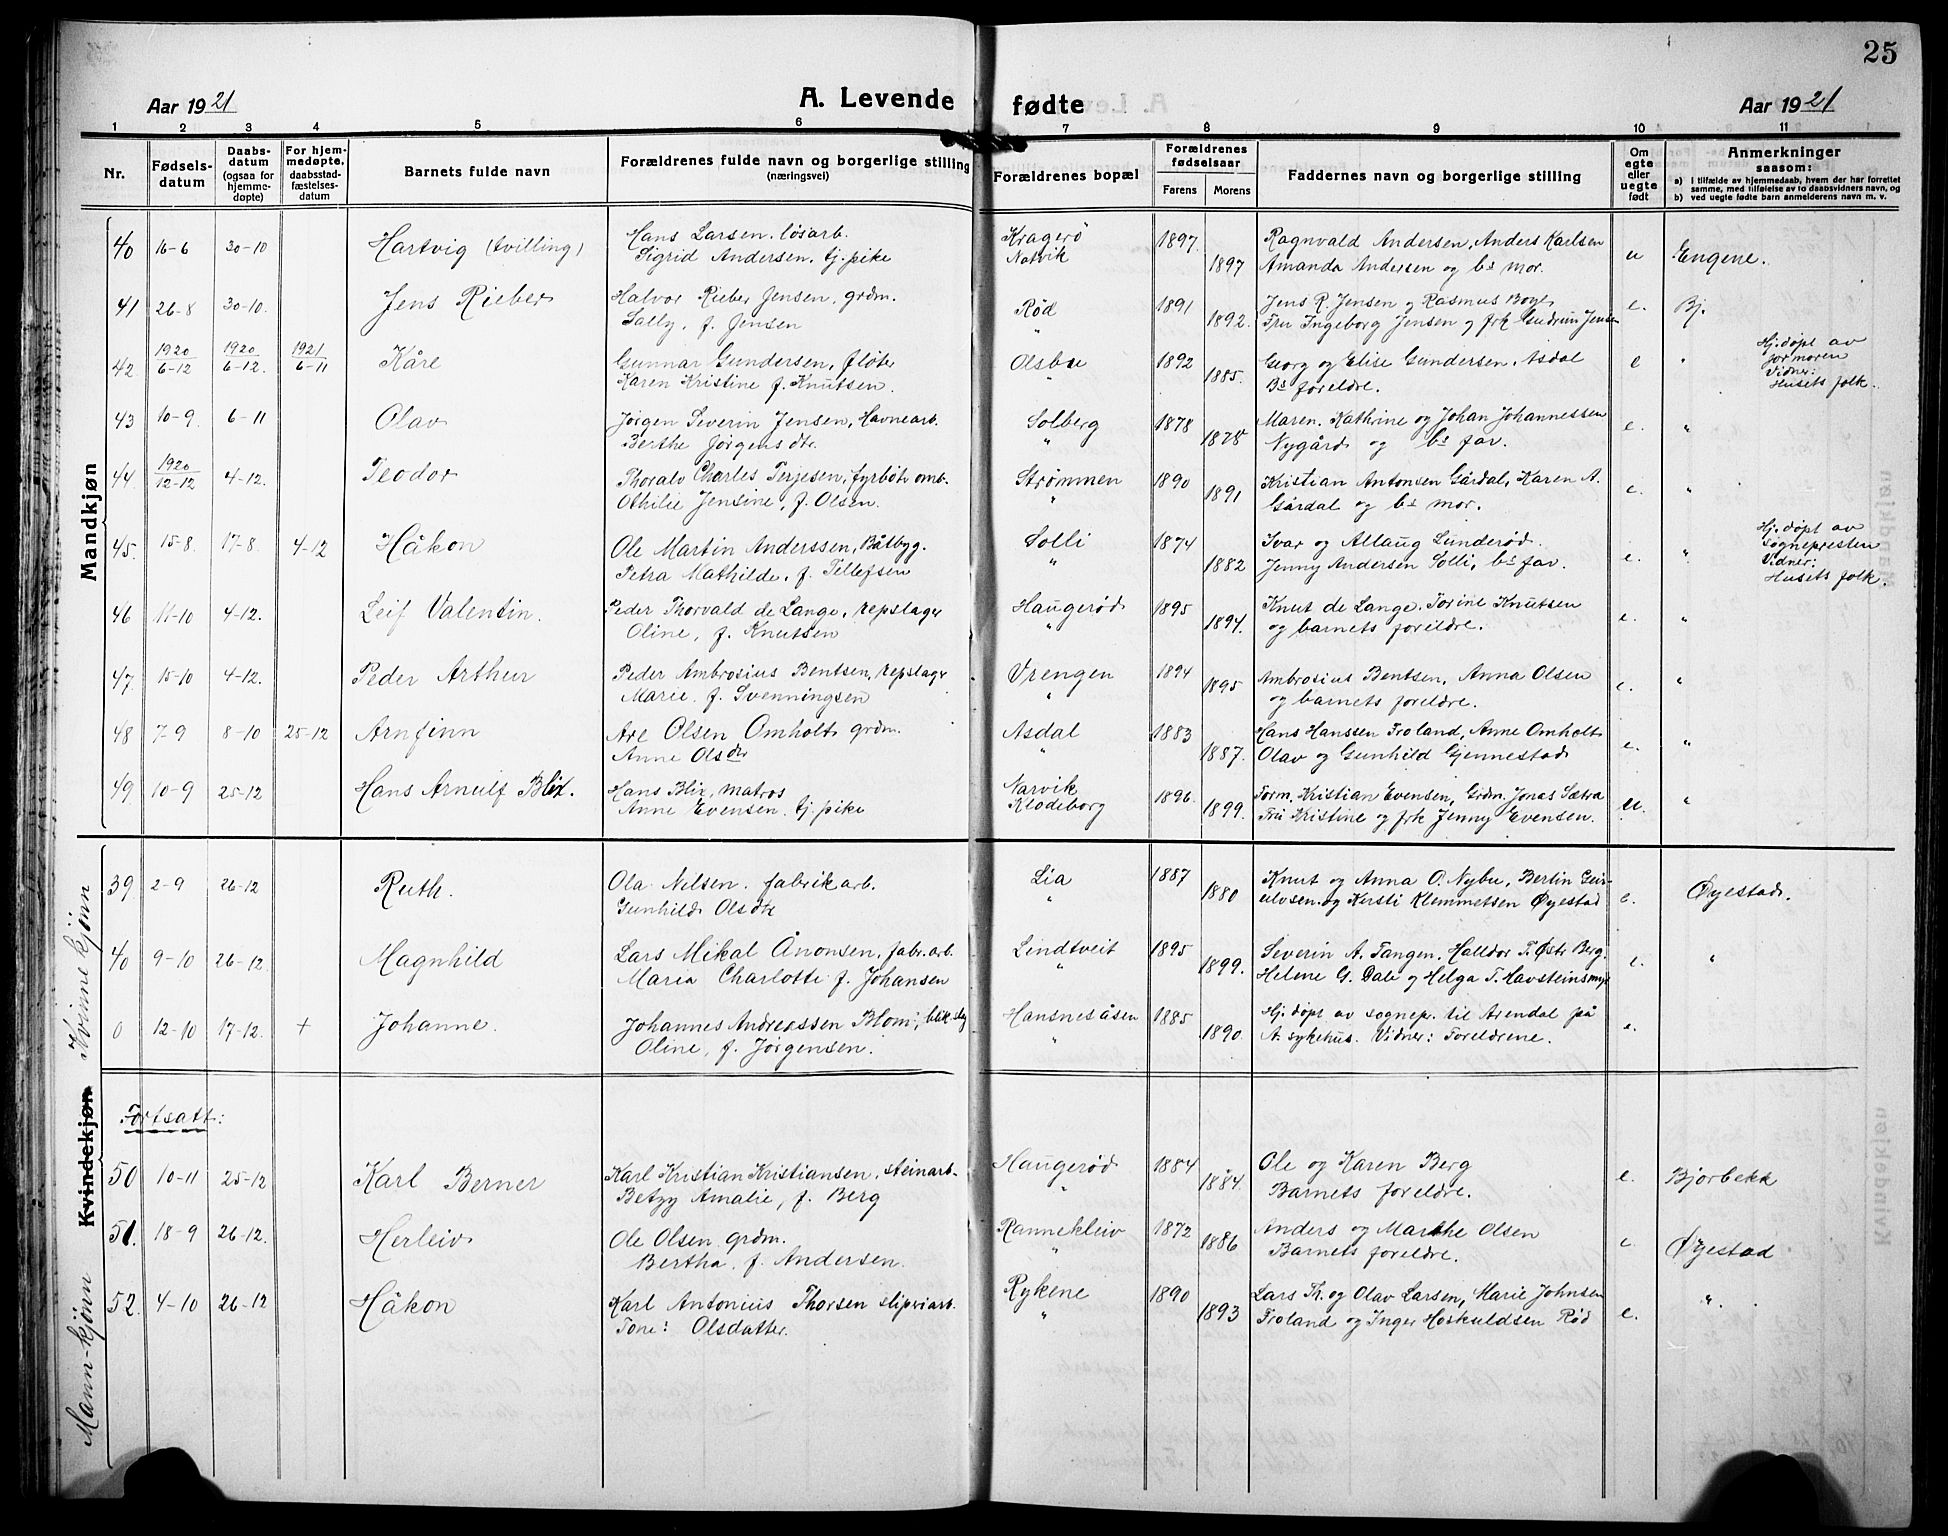 25
Aar 1921 A. Levende fødte Aar 1921
1 2 3 4 5 6 7 8 9 10 11
Nr. Fødsels-datum Daabs-datum (ogsaa for hjemme-døpte) For hjem-medøpte, daabsstad-fæstelses-datum Barnets fulde navn Forældrenes fulde navn og borgerlige stilling (næringsvei) Forældrenes bopæl Forældrenes fødselsaar Farens Morens Faddernes navn og borgerlige stilling Om egte eller uegte født Anmerkninger saasom:
a) i tilfælde av hjemmedaab, hvem der har forrettet samme, med tilføielse av to daabsvidners navn, og
b) ved uegte fødte barn anmelderens navn m. v.
Mandkjøn
40 16-6 30-10 Hartvig (tvilling) Hans Larsen, løsarb. Kragerø 1897 Ragnvald Andersen, Anders Karlsen u Engene.
Sigrid Andersen, tj. pike Natvik 1897 Amanda Andersen og bs mor.
41 26-8 30-10. Jens Rieber Halvor Rieber Jensen, grdm. Rød 1891 Jens R. Jensen og Rasmus Boye e. Bj.
Sally, f. Jensen " 1892. Fru Ingeborg Jensen og frk Gudrun Jensen
42 1920 6-12 1920 6-12. 1921 6-11 Kåre Gunnar Gundersen, fløter Olsbu 1892 Georg og Elise Gundersen, Asdal e " Hj. døpt av formoren
Karen Kristine f. Knutsen. " 1885. Bs foreldre. Vidner: Husets folk.
43 10-9. 6-11 Olav Jørgen Severin Jensen, Havnearb. Solberg 1878 Maren, Kathrine og Johan Johannessen e. "
Berthe Jørgensdtr. " 1878 Nygård og bs far.
44 1920 12-12 4-12. Teodor Thoralv Charles Terjesen, fyrbøt. omb. Strømmen 1890 Kristian Antonsen Gårdal, Karen A. e. "
Othilie Jensine, f. Olsen. " 1891 Gårdal og bs mor.
45. 15-8. 17-8 4-12 Håkon Ole Martin Anderssen, Båtbyg. Solli 1874 Ivar og Allaug Sunderød. e. " Hj. døpt av sognepresten
Petra Mathilde, f. Tellefsen " 1882 Jenny Andersen Solli, bs far. Vidner: Husets folk.
46 11-10 4-12. Leif Valentin. Peder Thorvald de Lange, repslager Haugerød 1895 Knut de Lange, Torine Knutsen e. "
Oline, f. Knutsen " 1894. og barnets foreldre.
47. 15-10 4-12. Peder Arthur Peder Ambrosius Bentsen, repslager Vrengen 1894 Ambrosius Bentsen, Anna Olsen e. "
Marie, f. Svenningsen " 1895 og barnets foreldre.
48 7-9 8-10 25-12 Arnfinn Are Olsen Omholt grdm. Asdal 1883 Hans Hanssen Froland, Anne Omholt e. "
Anne Olsdtr " 1887. Olav og Gunhild Gjennestad
49 10-9 25-12 Hans Arnulf Blix. Hans Blix, matros Narvik 1896. Form. Kristian Evensen, Grdm. Jonas Sætra u. "
Anne Evensen, tj. pike Klodeborg 1899. Fru Kristine og frk Jenny Evensen.
Kvinnekjønn
39 2-9 26-12 Ruth. Ola Nilsen, fabrikarb. Lia 1887 Knut og Anna O. Nybu, Bertin Gun- e. Øyestad.
Gunhild Olsdtr " 1880 ulvsen og Kirsti Klemmetsen Øyestad
40 9-10 26-12. Magnhild Lars Mikal Ånonsen, fabr.arb. Lindtveit 1895 Severin A. Tangen, Halldor T. Østr Berg. e. "
Maria Charlotte f. Johansen " 1899. Helene G. Dale og Helga T. Havsteinsmyr
0 12-10 17-12. + Johanne. Johannes Andreassen Blom, bliksl. Hansnesåsen 1885 Hj. døpt av sognepr. til Arendal på e.
Oline, f. Jørgensen. " 1890. A. sykehus. Vidner: Foreldrene.
Kvindekjøn
Mann-kjønn
Fortsatt:
50 10-11 25-12 Karl Berner Karl Kristian Kristiansen, steinarb. Haugerød 1884 Ole og Karen Berg e. Bjorbekk
Betzy Amalie, f. Berg " 1884. Barnets foreldre.
51. 18-9 26-12. Herleiv Ole Olsen, grdm. Rannekleiv 1872 Anders og Marthe Olsen e. Øyestad
Bertha, f. Andersen. " 1886 Barnets foreldre.
52. 4-10 26-12 Håkon Karl Antonius Thorsen sliperiarb. Rykene 1890 Lars Th. og Olav Larsen, Marie Johnsen e. "
Tone: Olsdatter. " 1893 Froland og Inger Hoskuldsen Rød